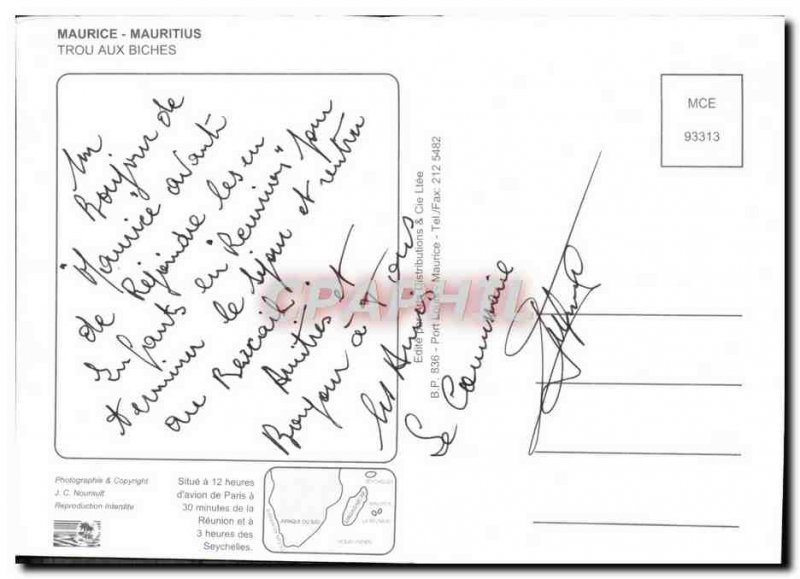 MAURICE - MAURITIUS
TROU AUX BICHES
Un
Bonjour de
"Maurice avant
de Rejoindre les en
Enfants en Reunion" pour
terminer le séjour et rentrer
au Bercail.
Amitiés et
Bonjour à Tous
les Amis
de
CPAPHIL
Edité par Distributions & Cie Ltée
B.P. 836 - Port Louis - Maurice - Tel./Fax: 212 5482
MCE
93313
Photographie & Copyright
J. C. Nourault
Reproduction Interdite
Situé à 12 heures
d'avion de Paris à
30 minutes de la
Réunion et à
3 heures des
Seychelles.
SEYCHELLES
AFRIQUE DU SUD
MAURICE
LA REUNION
OCEAN INDIEN